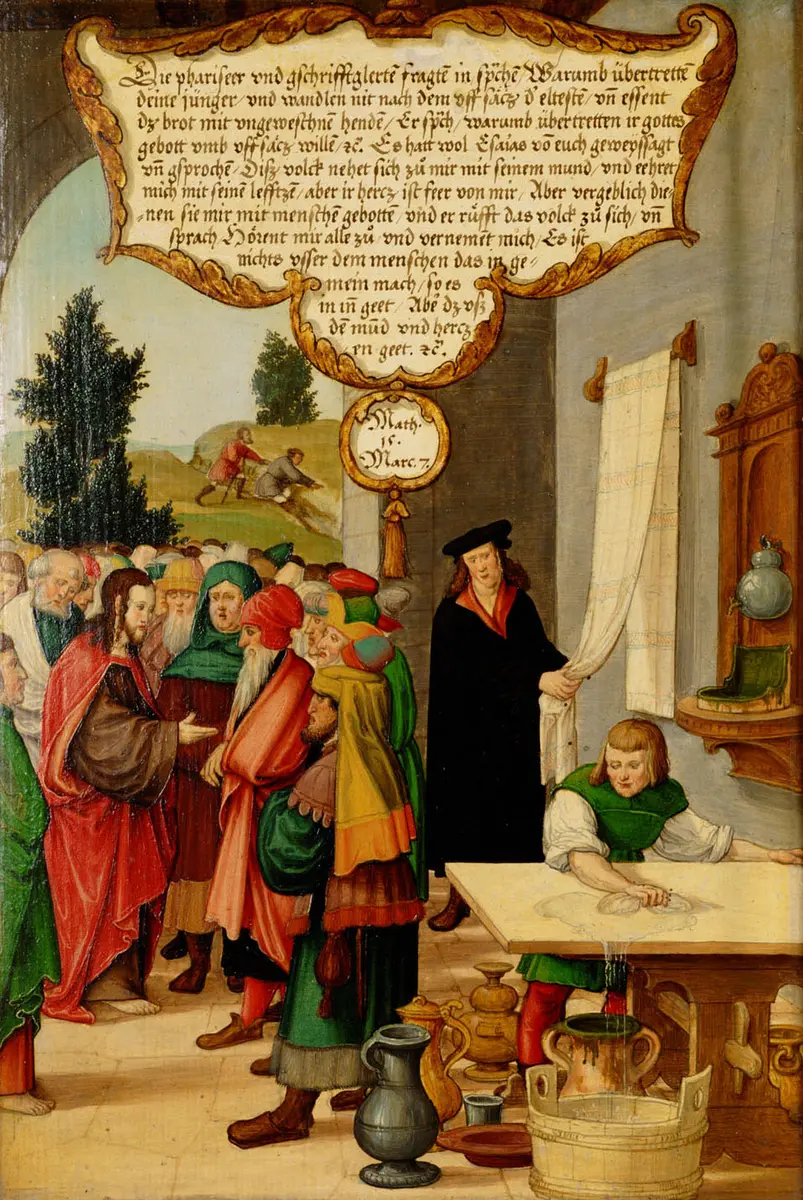 Die phariseer vnd gschrifftglertē fragtē in sp̄chē Warumb übertrettē
deine jünger / vnd wandlen nit nach dem vff sācz d' eltestē / vn̄ essent
dz brot mit vngeweschnē henden / Er sp̄ch / warumb übertretten ir gottes
gebott vmb vff sācz willē / ꝛc̄. Es hatt wol Esaias vō euch geweyssagt
vn̄ gsprochē / Disz volck nehet sich zů mir mit seinem mund / vnd eehret
mich mit seinē lefftzē / aber ir hercz ist feer von mir / Aber vergeblich die-
-nen sie mir mit menschē gebottē / vnd er rüfft das volck zů sich / vn̄
sprach Hörent mir alle zů / vnd vernemēt mich / Es ist
nichts vsser dem menschen das in ge-
mein mach / so es
in in̄ geet / Abē dz vsz
dē mūd vnd hercz
en geet. ꝛc̄.
Math.
15.
Marc. 7.